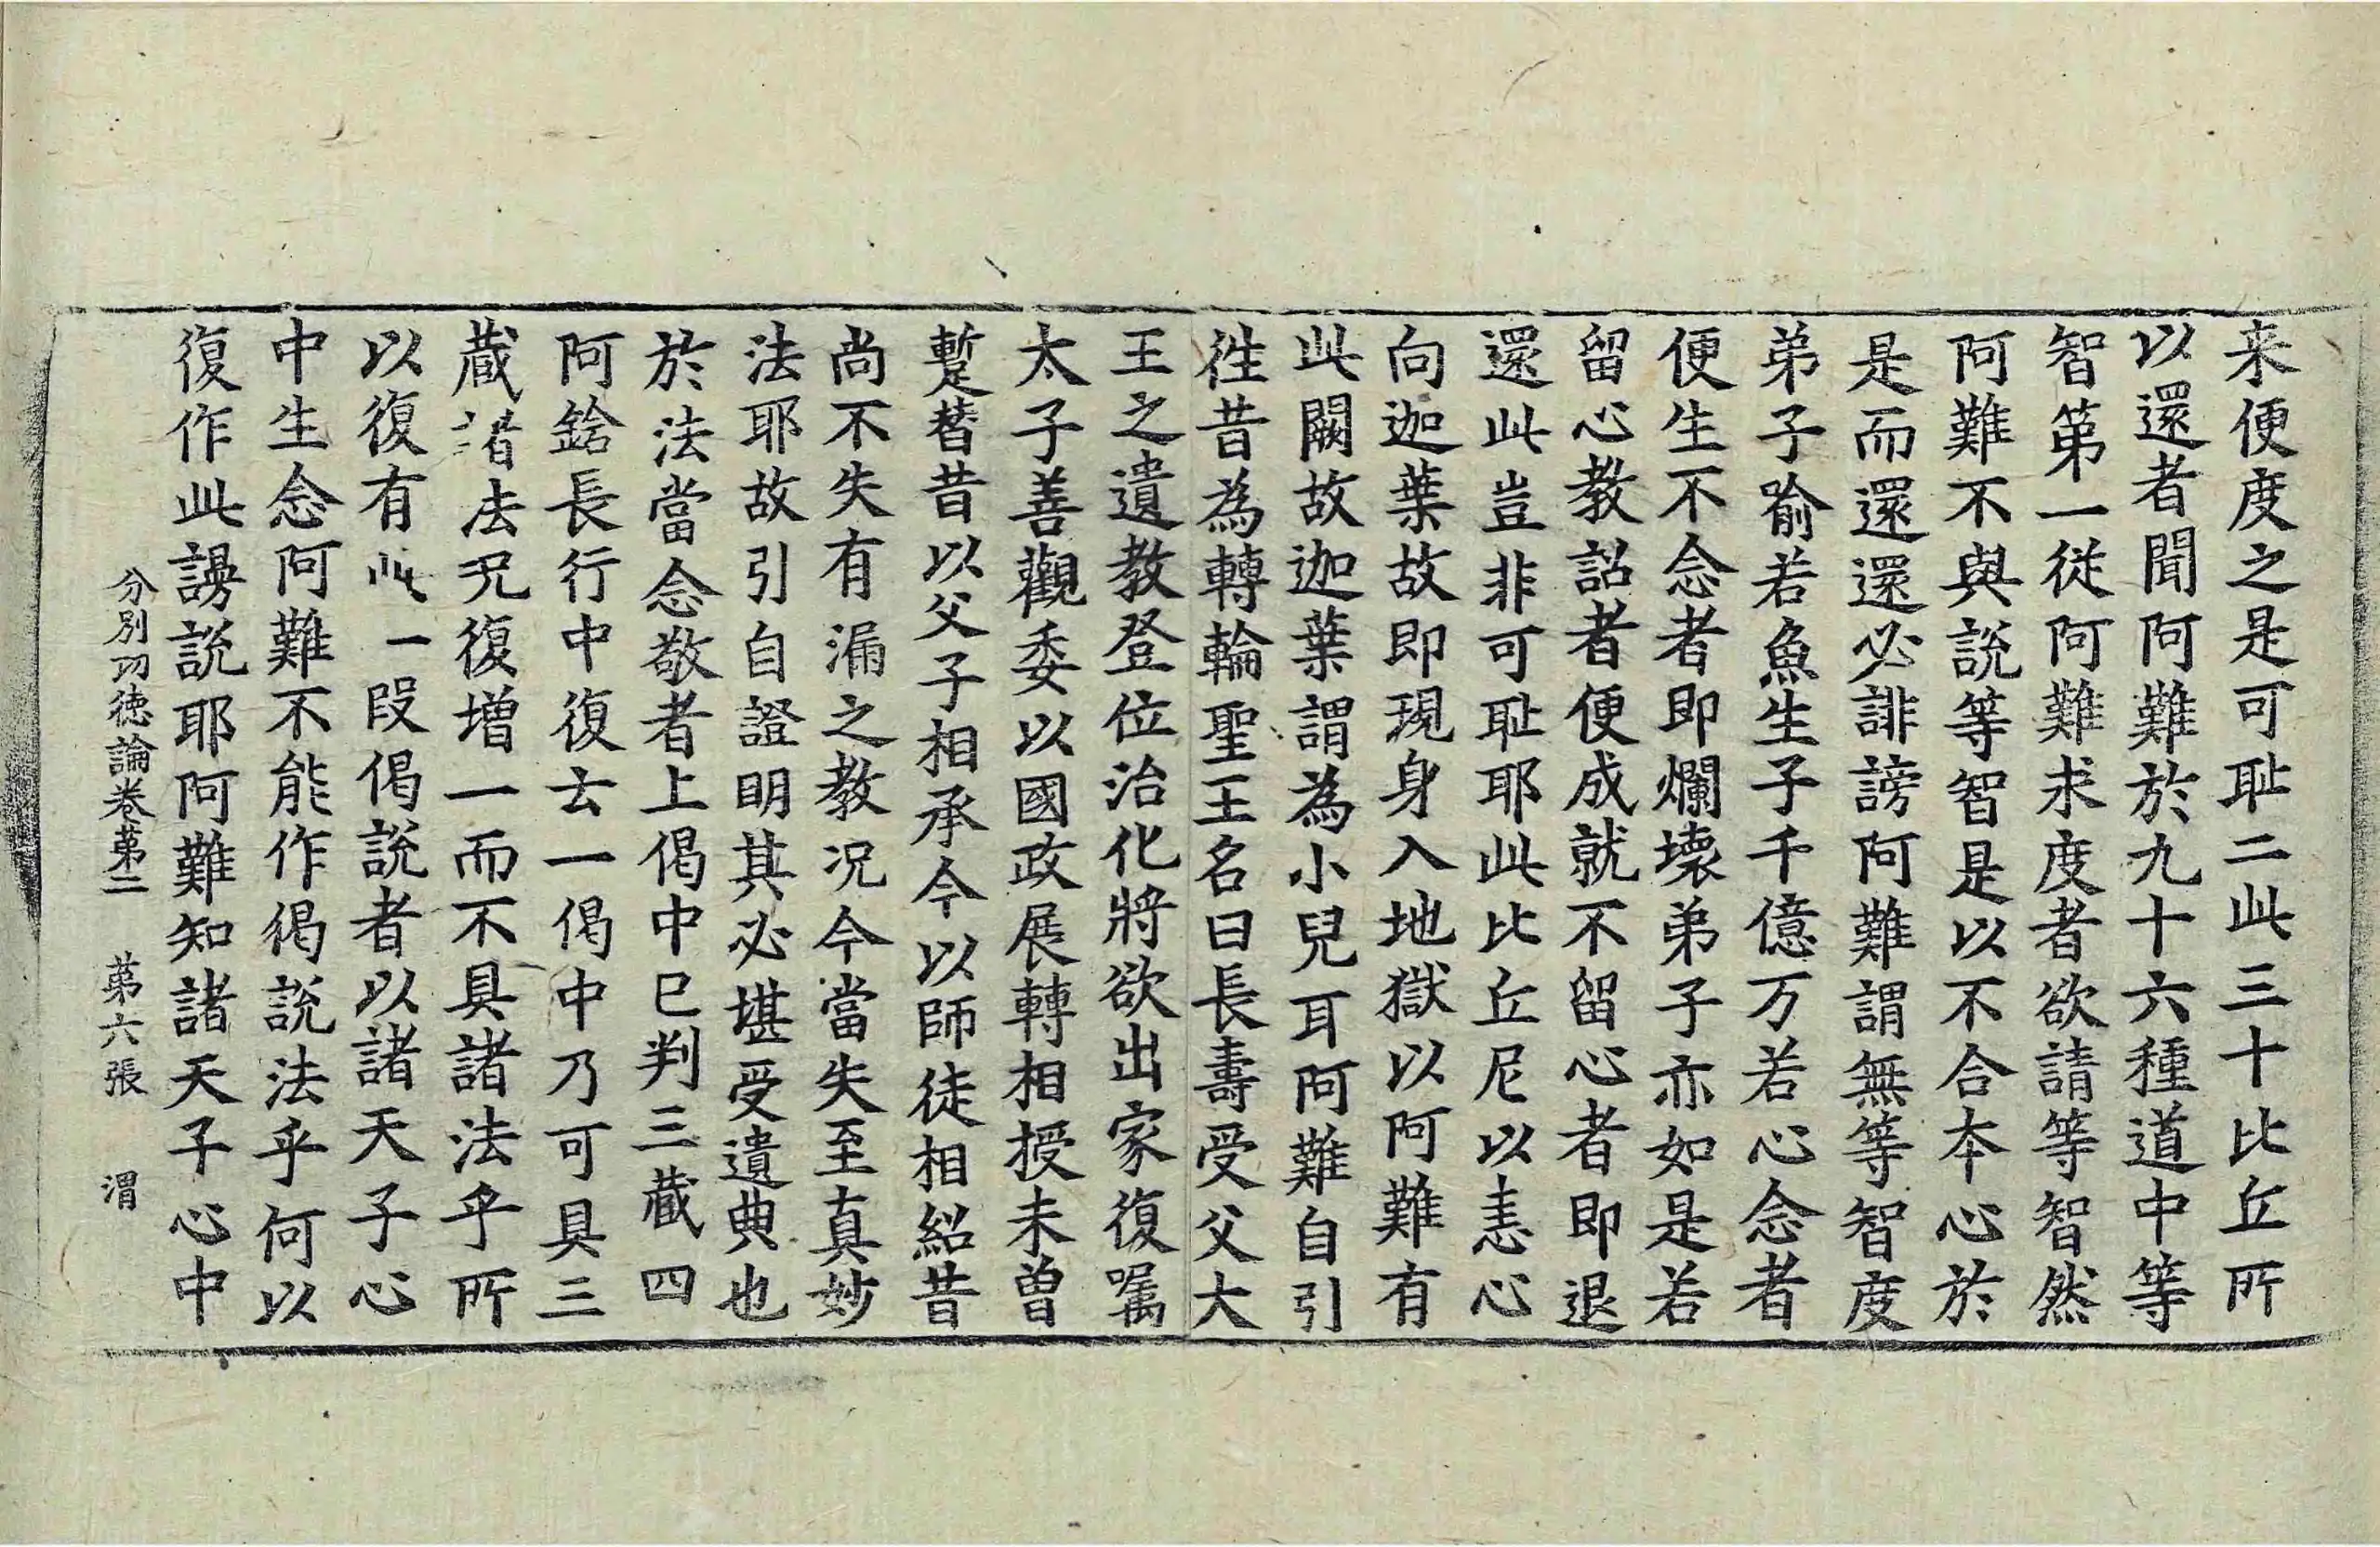 来便度之是可耻二此三十比丘所
以還者聞阿難於九十六種道中等
智第一従阿難求度者欲請等智然
阿難不與說等智是以不合本心於
是而還還必誹謗阿難謂無等智度
弟子喻若魚生子千億万若心念者
便生不念者即爛壞弟子亦如是若
留心教詔者便成就不留心者即退
還此豈非可耻耶此比丘尼以恚心
向迦葉故即現身入地獄以阿難有
此闕故迦葉謂為小兒耳阿難自引
徃昔為轉輪聖王名曰長壽受父大
王之遺教登位治化將欲出家復囑
太子善觀委以國政展轉相授未曽
蹔替昔以父子相承今以師徒相紹昔
尚不失有漏之教况今當失至真妙
法耶故引自證明其必堪受遺典也
於法當念敬者上偈中已判三藏四
阿鋡長行中復云一偈中乃可具三
藏諸法况復增一而不具諸法乎所
以復有此一段偈說者以諸天子心
中生念阿難不能作偈說法乎何以
復作此謾說耶阿難知諸天子心中
分別功德論卷第二 第六張 渭